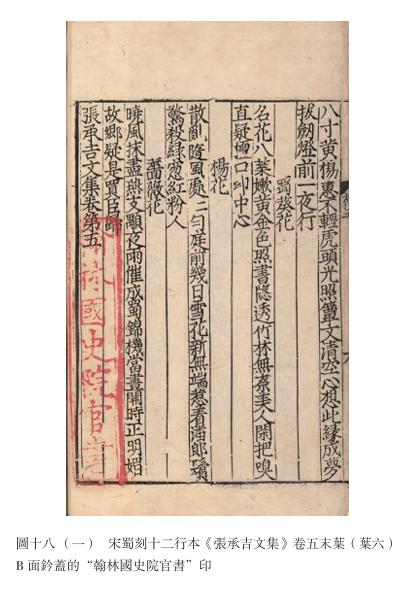 八寸黃楊惠不輕虎頭光照簟文清空心想此緣成夢
拔劒燈前一夜行
蜀葵花
名花八葉嫩黃金色照書隐透竹林無柰美人閑把嗅
直疑檀口印中心
楊花
散亂隨風處二匀庭前幾日雪花新無端惹着潘郎鬢
驚殺緑窓紅粉人
薔薇花
曉風抹盡燕支顆夜雨催成蜀錦機當晝開時正明媚
故鄉疑是買臣歸
張承吉文集卷第五
翰林國史院官書
圖十八（一） 宋蜀刻十二行本《張承吉文集》卷五末葉（葉六）
B 面鈐蓋的“翰林國史院官書”印